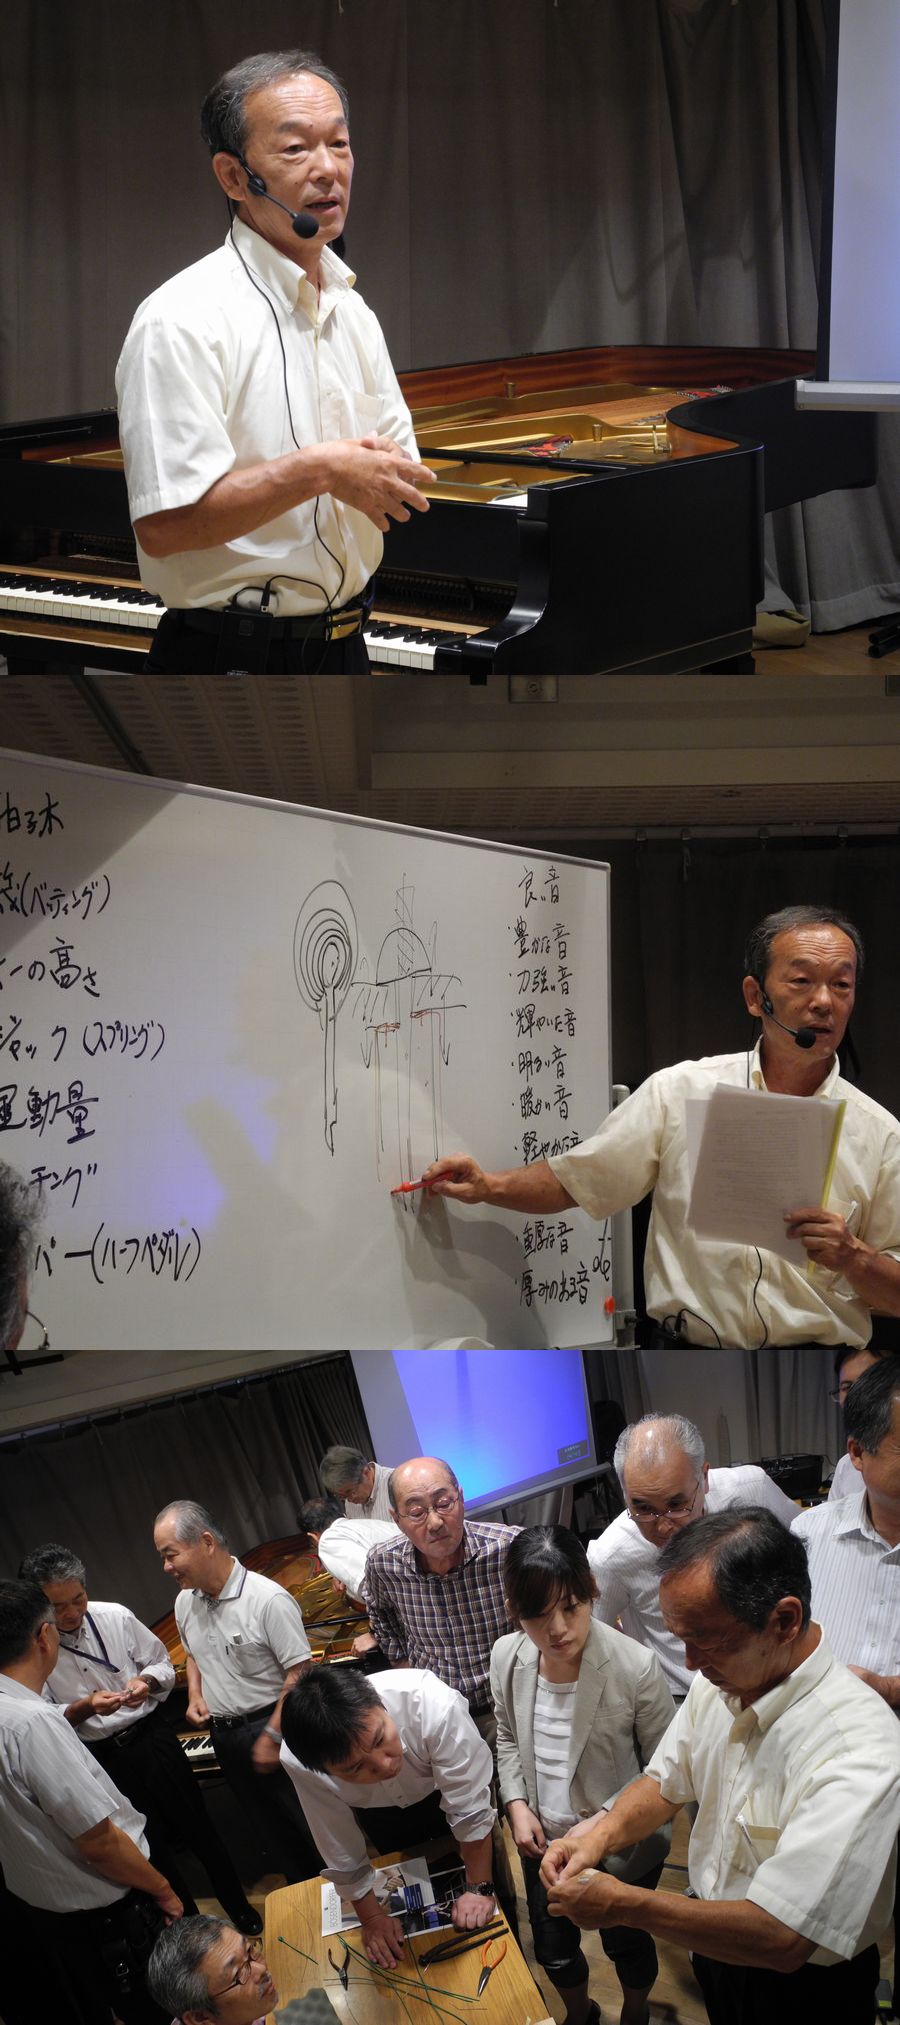 拍子木
(ベディング)
の高さ
ジャック(スプリング)
運動量
チング
パー(ハーフペダル)
良い音
・豊かな音
・力強い音
・輝やいた音
・明るい音
・暖かい音
・軽やかな音
・重厚な音
・厚みのある音